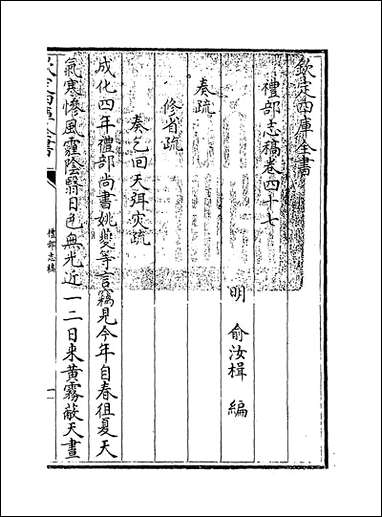 欽定四庫全書
禮部志稿卷四十七
明 俞汝楫 編
奏疏
修省疏
奏乞回天弭災疏
成化四年禮部尚書姚夔等言竊見今年自春徂夏天
氣寒慘風霾陰翳日色無光近一二日來黃霧蔽天晝
欽定四庫全書
禮部志稿
一